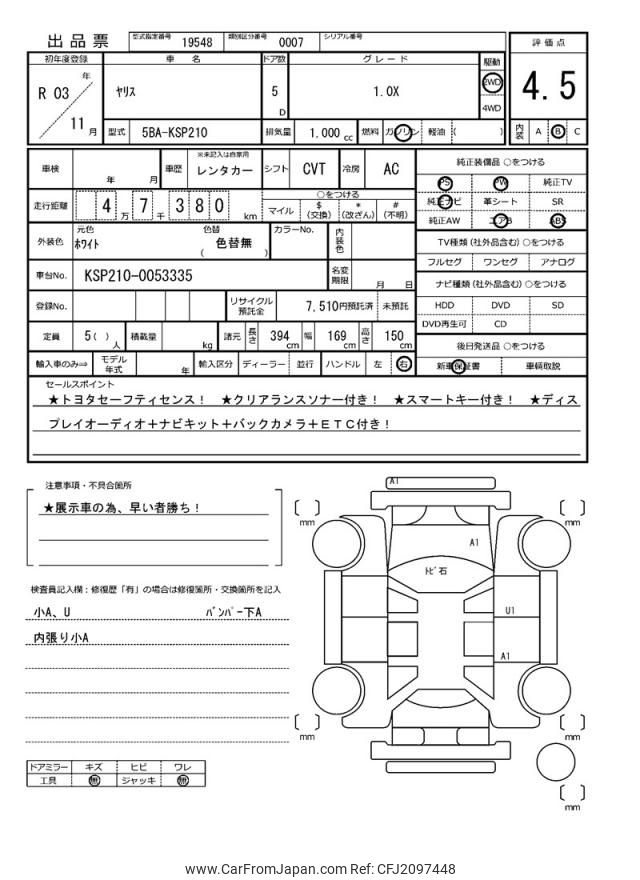 出品票
型式指定番号 19548 類別区分番号 0007 シリアル番号
初年度登録 車名 ドア数 グレード 駆動 評価点
R 03 年 11 月
ヤリス 5 D 1.0X 2WD 4WD
4.5
型式 5BA-KSP210 排気量 1.000 cc 燃料 ガソリン 軽油 ( )
内装 A B C
車検 年 月 車歴 ※未記入は自家用 レンタカー シフト CVT 冷房 AC
走行距離 4 万 7 千 3 8 0 km
○をつける
マイル $ (交換) * (改ざん) # (不明)
外装色 元色 ホワイト 色替 色替無 ( ) カラーNo. 内装色
車台No. KSP210-0053335 名変期限 月 日
登録No. リサイクル預託金 7,510円預託済 未預託
定員 5( ) 人 積載量 kg 諸元 長さ 394 cm 幅 169 cm 高さ 150 cm
輸入車のみ⇒ モデル年式 年 輸入区分 ディーラー 並行 ハンドル 左 右
純正装備品 ○をつける
PS PW 純正TV
純正ナビ 革シート SR
純正AW エアB ABS
TV種類 (社外品含む) ○をつける
フルセグ ワンセグ アナログ
ナビ種類 (社外品含む) ○をつける
HDD DVD SD
DVD再生可 CD
後日発送品 ○をつける
新車保証書 車輌取説
セールスポイント
★トヨタセーフティセンス! ★クリアランスソナー付き! ★スマートキー付き! ★ディス
プレイオーディオ+ナビキット+バックカメラ+ETC付き!
注意事項・不具合箇所
★展示車の為、早い者勝ち!
検査員記入欄:修復歴「有」の場合は修復箇所・交換箇所を記入
小A、U バンパー下A
内張り小A
ドアミラー キズ ヒビ ワレ
工具 無 ジャッキ 無
A1
A1
トビ石
U1
A1
[ ] mm
[ ] mm
[ ] mm
[ ] mm
[ ] mm
www.CarFromJapan.com Ref: CFJ2097448